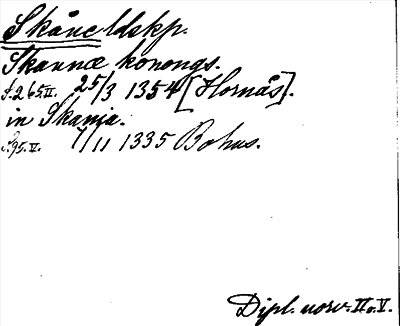 Skåne ldskp.
Skannæ konongs.
S. 265. II. 25/3 1354 [Hornås].
in Skanja.
S. 95. V. 7/11 1335 Bohus.
Dipl. norv. II o. V.